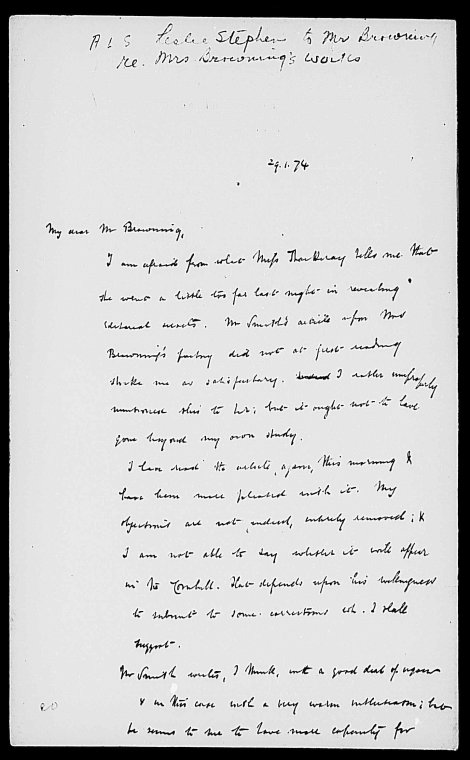 A L S Leslie Stephen to Mr Browning
re. Mrs Browning's works
29.1.74
My dear Mr Browning,
I am afraid from what Miss Thackeray tells me that
she went a little too far last night in revealing
editorial secrets. Mr Smith's article upon Mrs
Browning's poetry did not at first reading
strike me as satisfactory. I rather improperly
mentioned this to her; but it ought not to have
gone beyond my own study.
I have read the article, again, this morning &
have been more pleased with it. My
objections are not, indeed, entirely removed; &
I am not able to say whether it will appear
in the Cornhill. That depends upon his willingness
to submit to some corrections wh. I shall
suggest.
Mr Smith writes, I think, with a good deal of vigour
& in this case with a very warm enthusiasm; but
he seems to me to have more capacity for